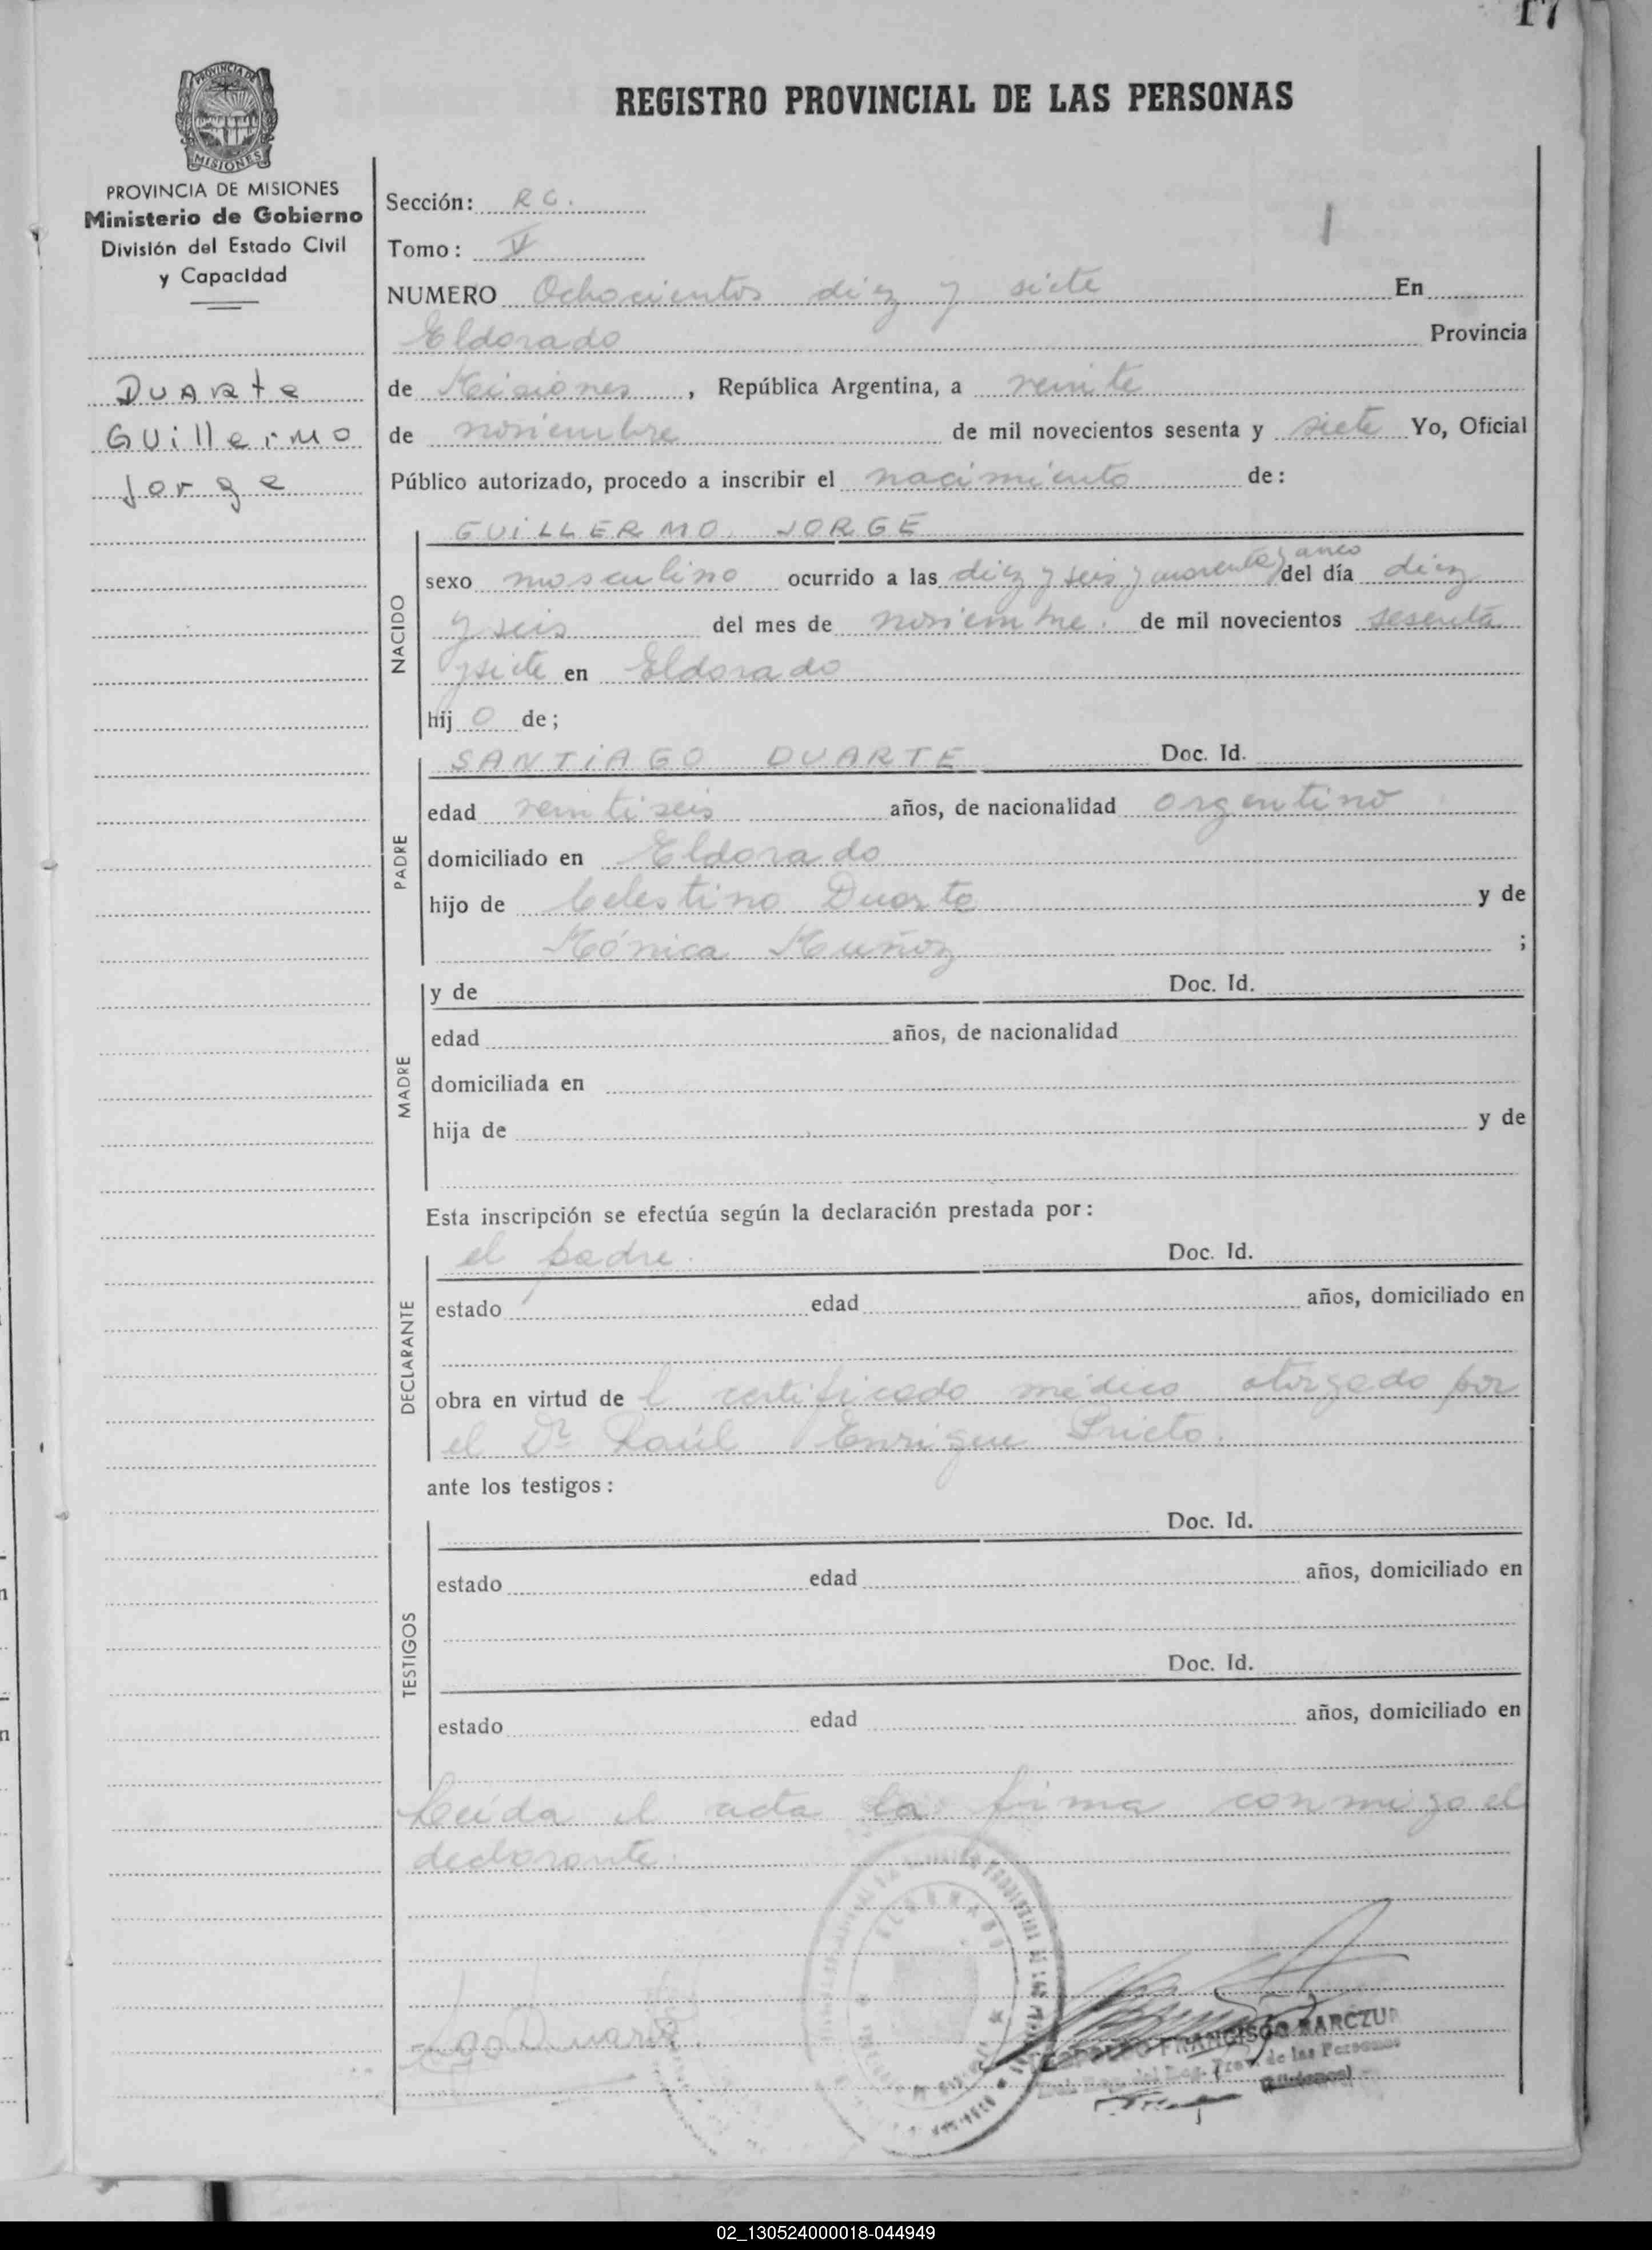 17
REGISTRO PROVINCIAL DE LAS PERSONAS
PROVINCIA DE
MISIONES
PROVINCIA DE MISIONES
Ministerio de Gobierno
División del Estado Civil
y Capacidad
Duarte
Guillermo
Jorge
Sección: R C.
Tomo: V
NUMERO Ochocientos diez y siete En
Eldorado Provincia
de Misiones, República Argentina, a veinte
de noviembre de mil novecientos sesenta y siete Yo, Oficial
Público autorizado, procedo a inscribir el nacimiento de:
NACIDO
GUILLERMO JORGE
sexo masculino ocurrido a las diez y seis y cuarenta y cinco del día diez
y seis del mes de noviembre. de mil novecientos sesenta
y siete en Eldorado
hijo de;
PADRE
SANTIAGO DUARTE Doc. Id.
edad veintiseis años, de nacionalidad argentino
domiciliado en Eldorado
hijo de Celestino Duarte y de
Mónica Muñoz ;
MADRE
y de Doc. Id.
edad años, de nacionalidad
domiciliada en
hija de y de
Esta inscripción se efectúa según la declaración prestada por:
DECLARANTE
el padre. Doc. Id.
estado edad años, domiciliado en
obra en virtud de l certificado médico otorgado por
el Dr Raúl Enrique Prieto.
ante los testigos:
TESTIGOS
Doc. Id.
estado edad años, domiciliado en
Doc. Id.
estado edad años, domiciliado en
Leída el acta la firma conmigo el
declarante.
ELDORADO
Duarte
FRANCISCO BARCZUK
del Reg. Prov. de las Personas
(Misiones)
02_130524000018-044949